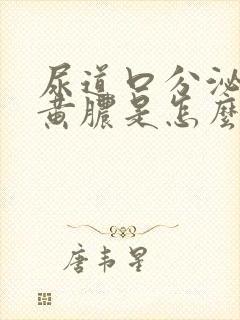 尿道口分泌
黄膿是怎麽
唐韦星